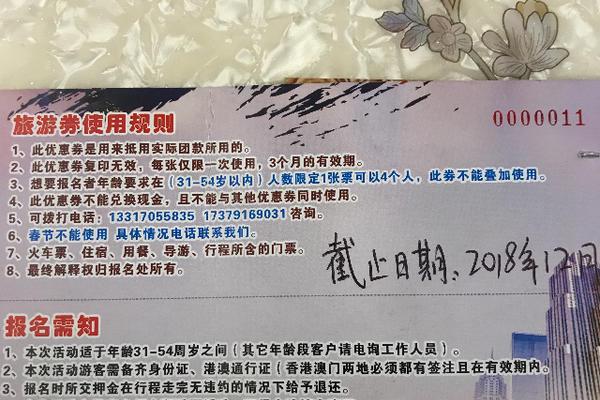 0000011
旅游券使用规则
1、此优惠券是用来抵用实际团款所用的。
2、此优惠券复印无效，每张仅限一次使用，3个月的有效期。
3、想要报名者年龄要求在（31-54岁以内）人数限定1张票可以4个人，此券不能叠加使用。
4、此优惠券不能兑换现金，且不能与其他优惠券同时使用。
5、可拨打电话：13317055835 17379169031咨询。
6、春节不能使用 具体情况电话联系我们。
7、火车票、住宿、用餐、导游、行程所含的门票。
8、最终解释权归报名处所有。
截止日期：2018年12月
报名需知
1、本次活动适于年龄31-54周岁之间（其它年龄段客户请电询工作人员）。
2、本次活动游客需备齐身份证、港澳通行证（香港澳门两地必须都有签注且在有效期内。
3、报名时所交押金在行程走完无违约的情况下给予退还。